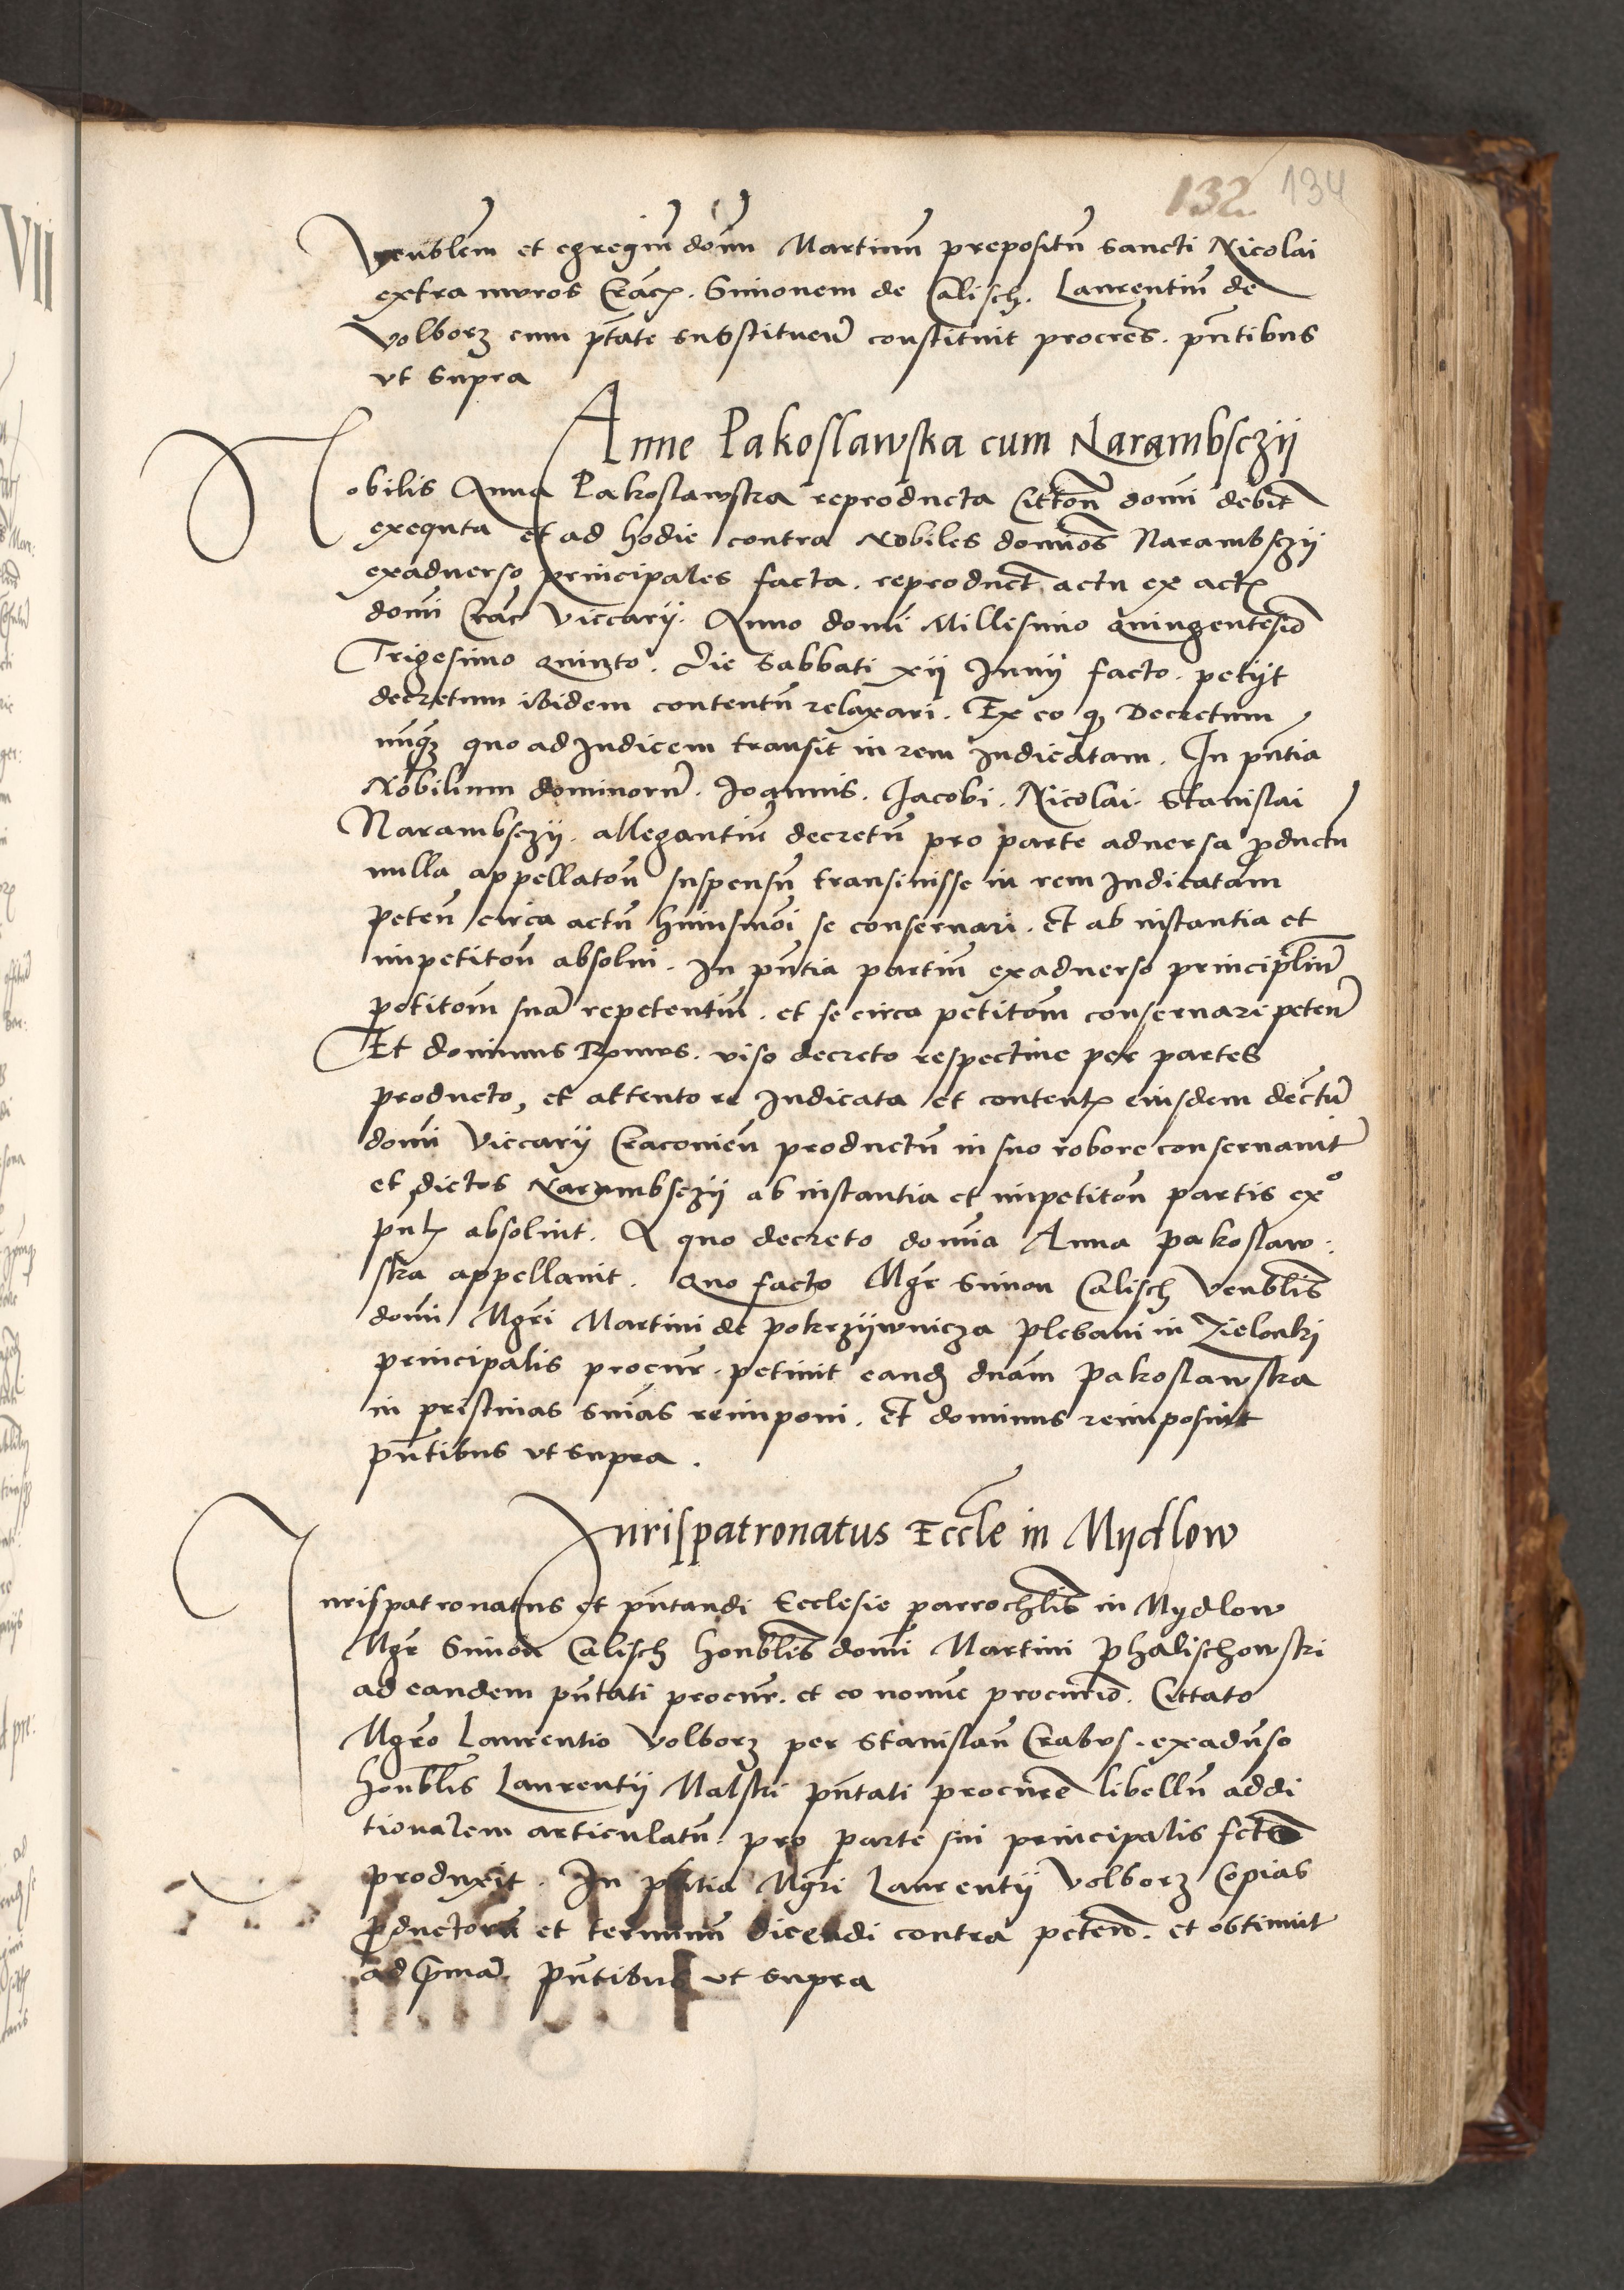 132. 134
Venblem et egregiu domn Martinum prepositu sancti Nicolai
extra muros Crac. Simonem de Calisch. Laurentiu de
Volborz cum ptate substituen constituit procres. pntibus
vt supra
Anne Pakoslawska cum Narambsczij
Nobilis Anna Pakoslawska reproducta Citton domi debit
exequta et ad hodie contra Nobiles domnos Narambsczij
exaduerso principales facta. reproduct actu ex act
domi Crac Viccarij. Anno domi Millesimo quingentesio
Trigesimo quinto. Die Sabbati xij Junij facto. petijt
decretum ibidem contentu relaxari. Ex eo q Decretum
nunq quo ad Judicem transit in rem Judicatam. In pntia
Nobilium dominoru. Joannis. Jacobi. Nicolai. Stanislai
Narambsczij. allegantiu decretu pro parte aduersa pductu
nulla appellaton suspensu transiuisse in rem Judicatam
peten circa actu huiusmoi se conseruari. et ab instantia et
impetiton absolui. In pntia partiu exaduerso principaliu
petitom sua repetentiu. et se circa petitom conseruari peten
Et dominus viso decreto respectiue per partes
producto, et attento re Judicata et content eiusdem dectu
domi Viccarij Cracouien productu in suo robore conseruauit
et dictos Narambsczij ab instantia et impetiton partis exo
absoluit. A quo decreto domia Anna Pakoslaw:
ska appellauit. Quo facto Mgr Simon Calisch Venblis
domi Mgri Martini de pokrzijwnicza plebani in Zielonki
principalis procur. petiuit eand dnam Pakoslawska
in pristinas snias reimponi. et dominus reimposuit
pntibus vt supra.
Jurispatronatus Eccle in Mydlow
Jurispatronatus et pntandi Ecclesie parrochlis in Mydlow
Mgr Simon Calisch honblis domi Martini Phalischowski
ad eandem pntati procur. et eo nomie procurio. Cittato
Mgro Laurentio Volborz per Stanislau Crabos. exaduso
honblis Laurentij Malski pntati procure libellu addi
tionalem articulatu. pro parte sui principalis
produxit. In pntia Mgri Laurentij Volborz Copias
pductoru et terminu dicendi contra peten. et obtinuit
ad pma. pntibus vt supra